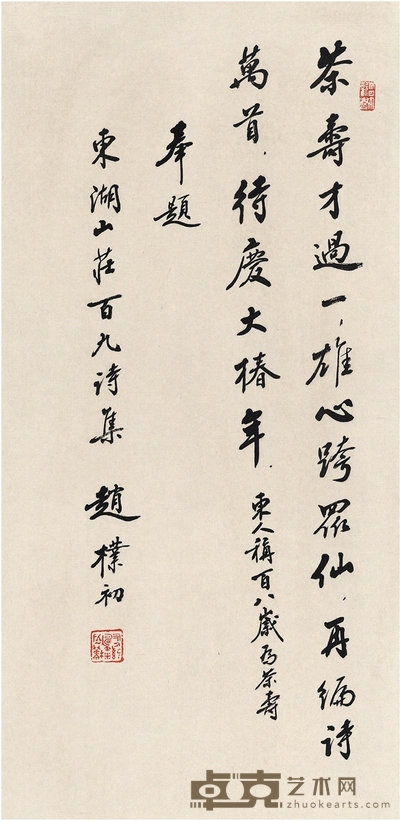 茶壽才過一，雄心跨眾仙，再編詩
萬首，待慶大椿年．東人稱百八歲為茶壽
奉題
東湖山莊百九詩集 趙樸初
卓克艺术网
zhuokearts.com